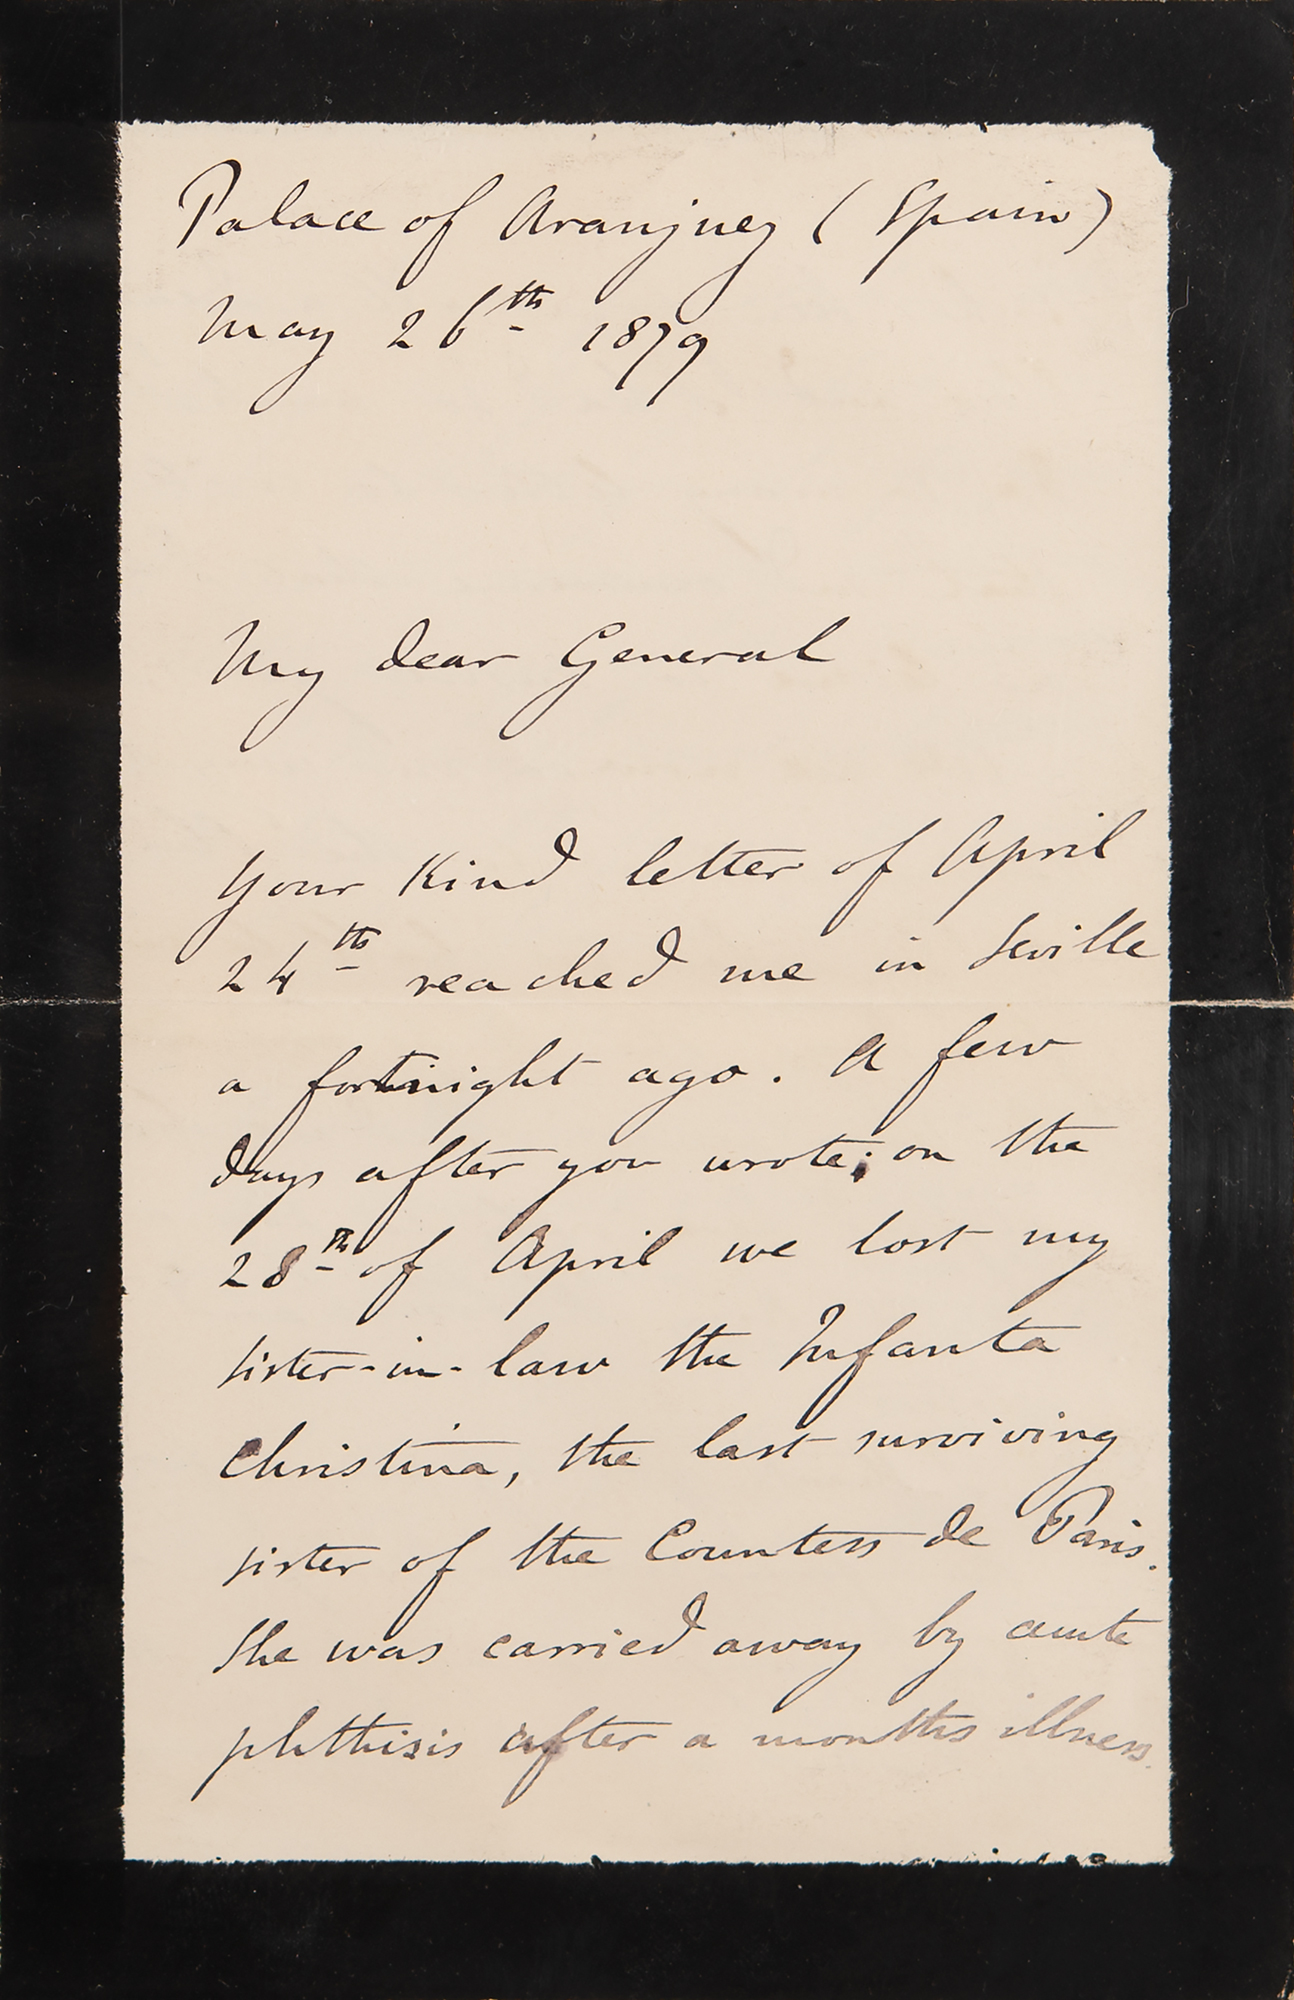 Palace of Aranjuez (Spain)
May 26th 1879
My dear General
Your kind letter of April
24th reached me in Seville
a fortnight ago. A few
days after you wrote; on the
28th of April we lost my
sister-in-law the Infanta
Christina, the last surviving
sister of the Countess de Paris.
She was carried away by acute
phthisis after a months illness.